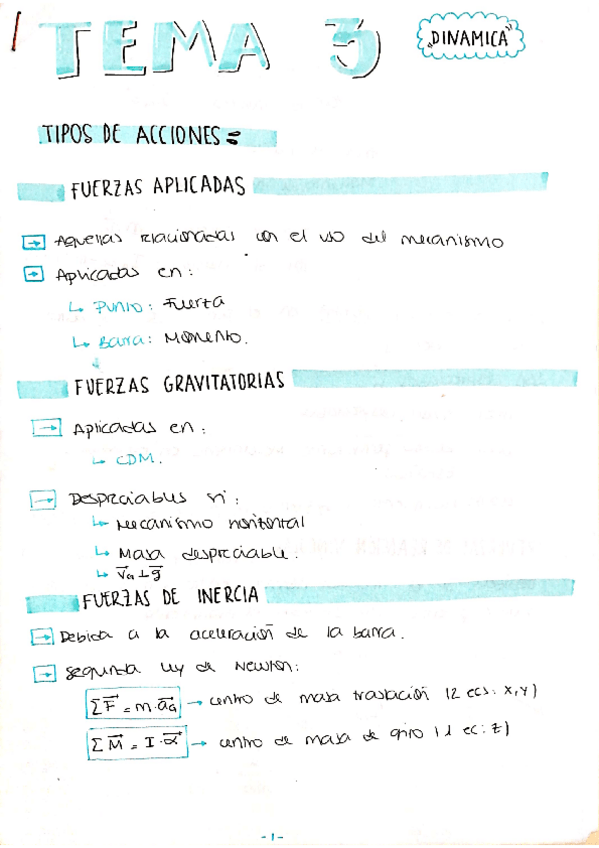 TEMA 3
"DINAMICA"
TIPOS DE ACCIONES:
FUERZAS APLICADAS
→ Aquellas relacionadas con el uso del mecanismo
→ Aplicadas en:
↳ Punto: Fuerza
↳ Barra: Momento.
↓
FUERZAS GRAVITATORIAS
→ Aplicadas en:
↳ CDM.
→ Despreciables si:
↳ Mecanismo horizontal
↳ Masa despreciable.
↳ v⃗G ⊥ g⃗
FUERZAS DE INERCIA
→ Debida a la aceleración de la barra.
→ Segunda ley de Newton:
ΣF⃗ = m·a⃗G → centro de masa traslación (2 ecs: x,y)
ΣM⃗ = I·α⃗ → centro de masa de giro (1 ec: z)
-1-